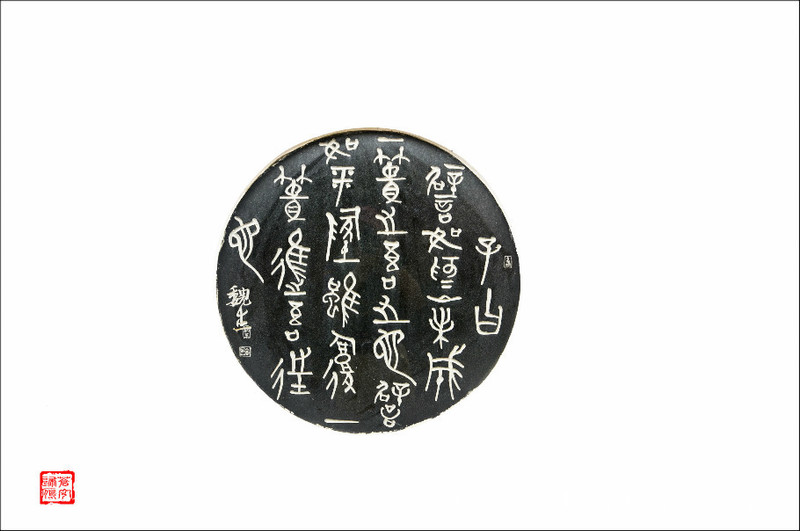 子曰
譬如為山未成
一簣止吾止也譬
如平地雖覆一
簣進吾往
也
魏杰